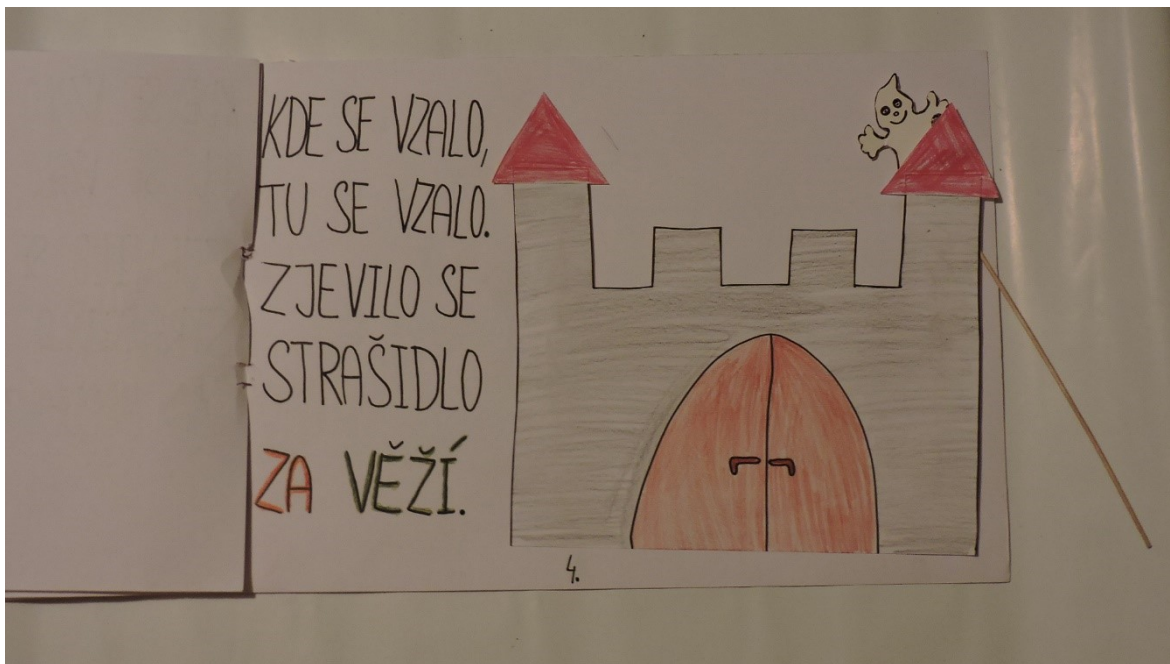 KDE SE VZALO,
TU SE VZALO.
ZJEVILO SE
STRAŠIDLO
ZA VĚŽÍ.
4.